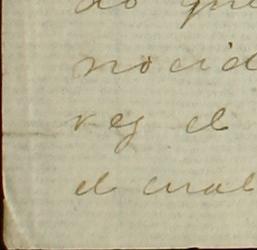 do que
nocid
rey el
el cual